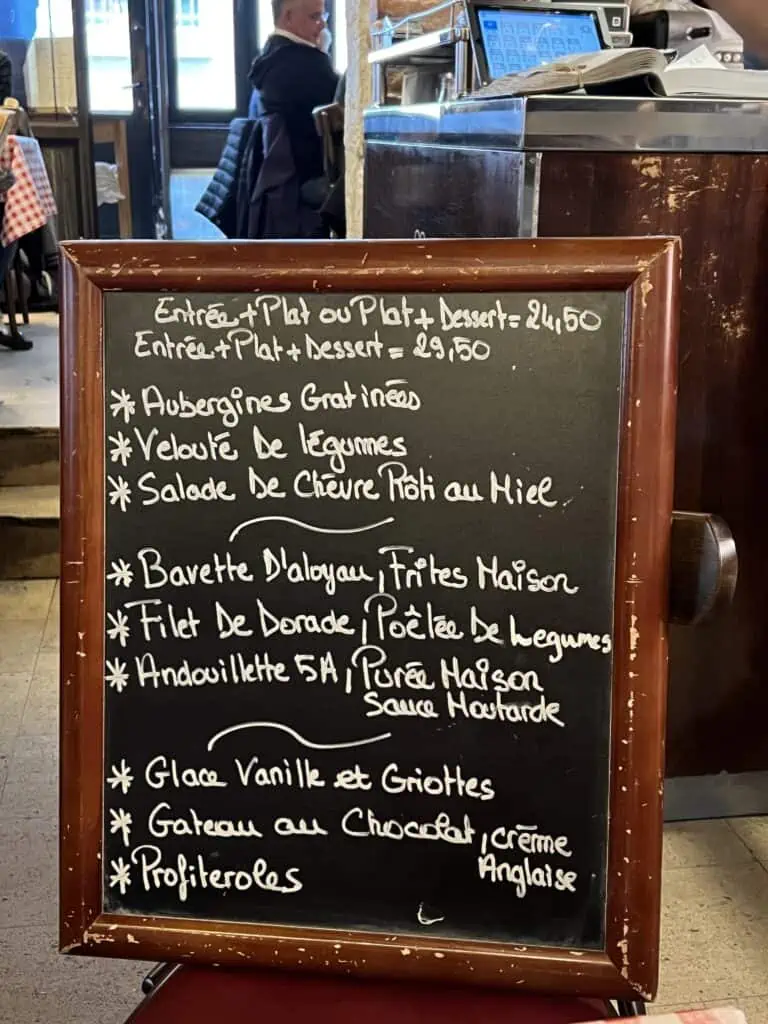 Entrée+Plat ou Plat+Dessert=24,50
Entrée+Plat+Dessert=29,50
* Aubergines Gratinées
* Velouté De légumes
* Salade De Chèvre Rôti au Miel
* Bavette D'aloyau, Frites Maison
* Filet De Dorade, Poêlée De Legumes
* Andouillette 5A, Purée Maison
Sauce Moutarde
* Glace Vanille et Griottes
* Gateau au Chocolat, crème
Anglaise
* Profiteroles